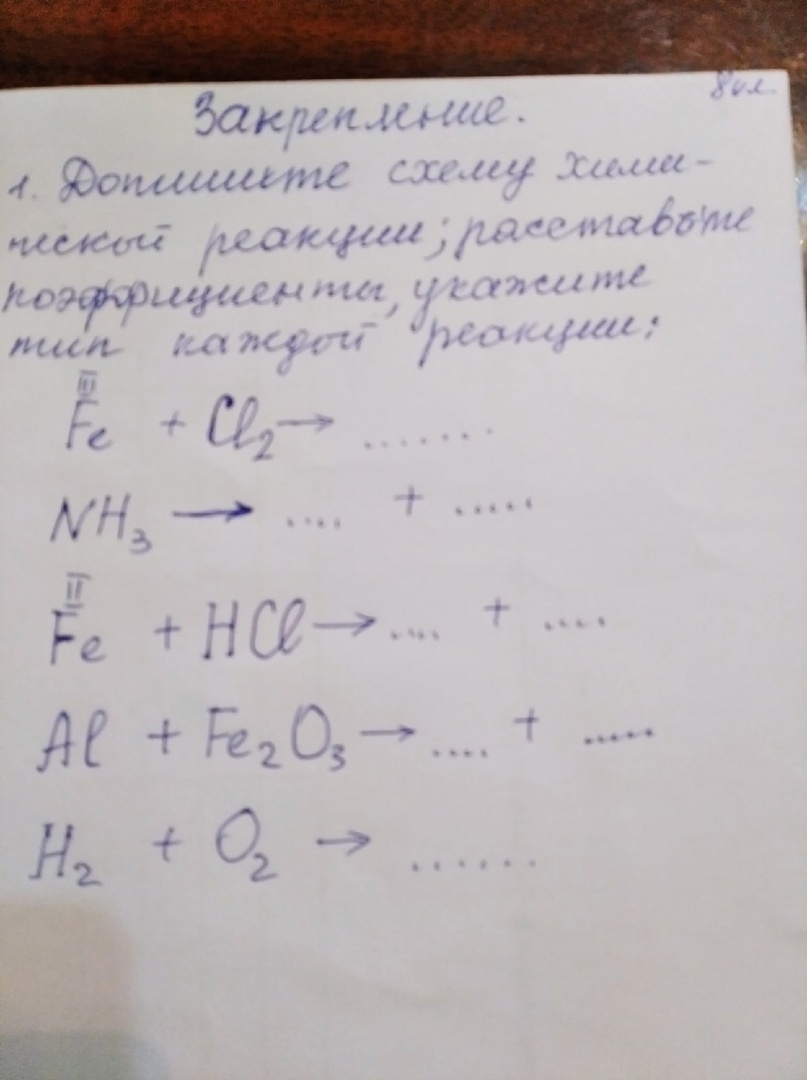 8 кл.
Закрепление.
1. Допишите схему хими-
ческой реакции; расставьте
коэффициенты, укажите
тип каждой реакции:
III
Fe + Cl₂ → .......
NH₃ → .... + .....
II
Fe + HCl → .... + ....
Al + Fe₂O₃ → .... + .....
H₂ + O₂ → ......